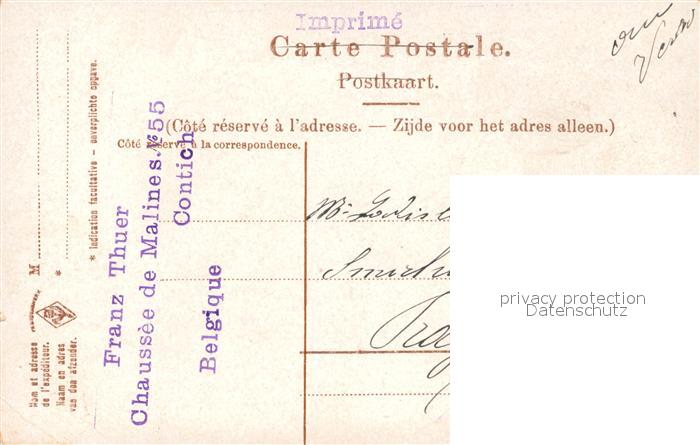 Imprimé
Carte Postale.
Postkaart.
(Côté réservé à l'adresse. — Zijde voor het adres alleen.)
Côté réservé à la correspondence.
* Indication facultative - onverplichte opgave.
M
*
Nom et adresse
de l'expéditeur.
Naam en adres
van den afzender.
Franz Thuer
Chaussèe de Malines.№55
Contich
Belgique
privacy protection
Datenschutz